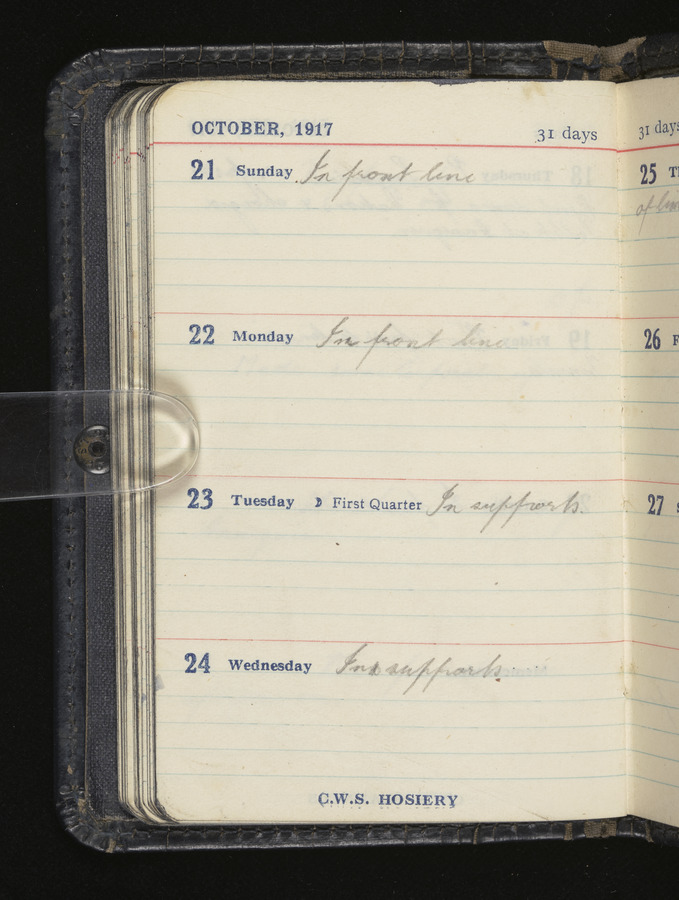 OCTOBER, 1917 31 days
21 Sunday In front line
22 Monday In front line
23 Tuesday First Quarter In supports.
24 Wednesday In supports.
C.W.S. HOSIERY
31 days
25
of
26 F
27